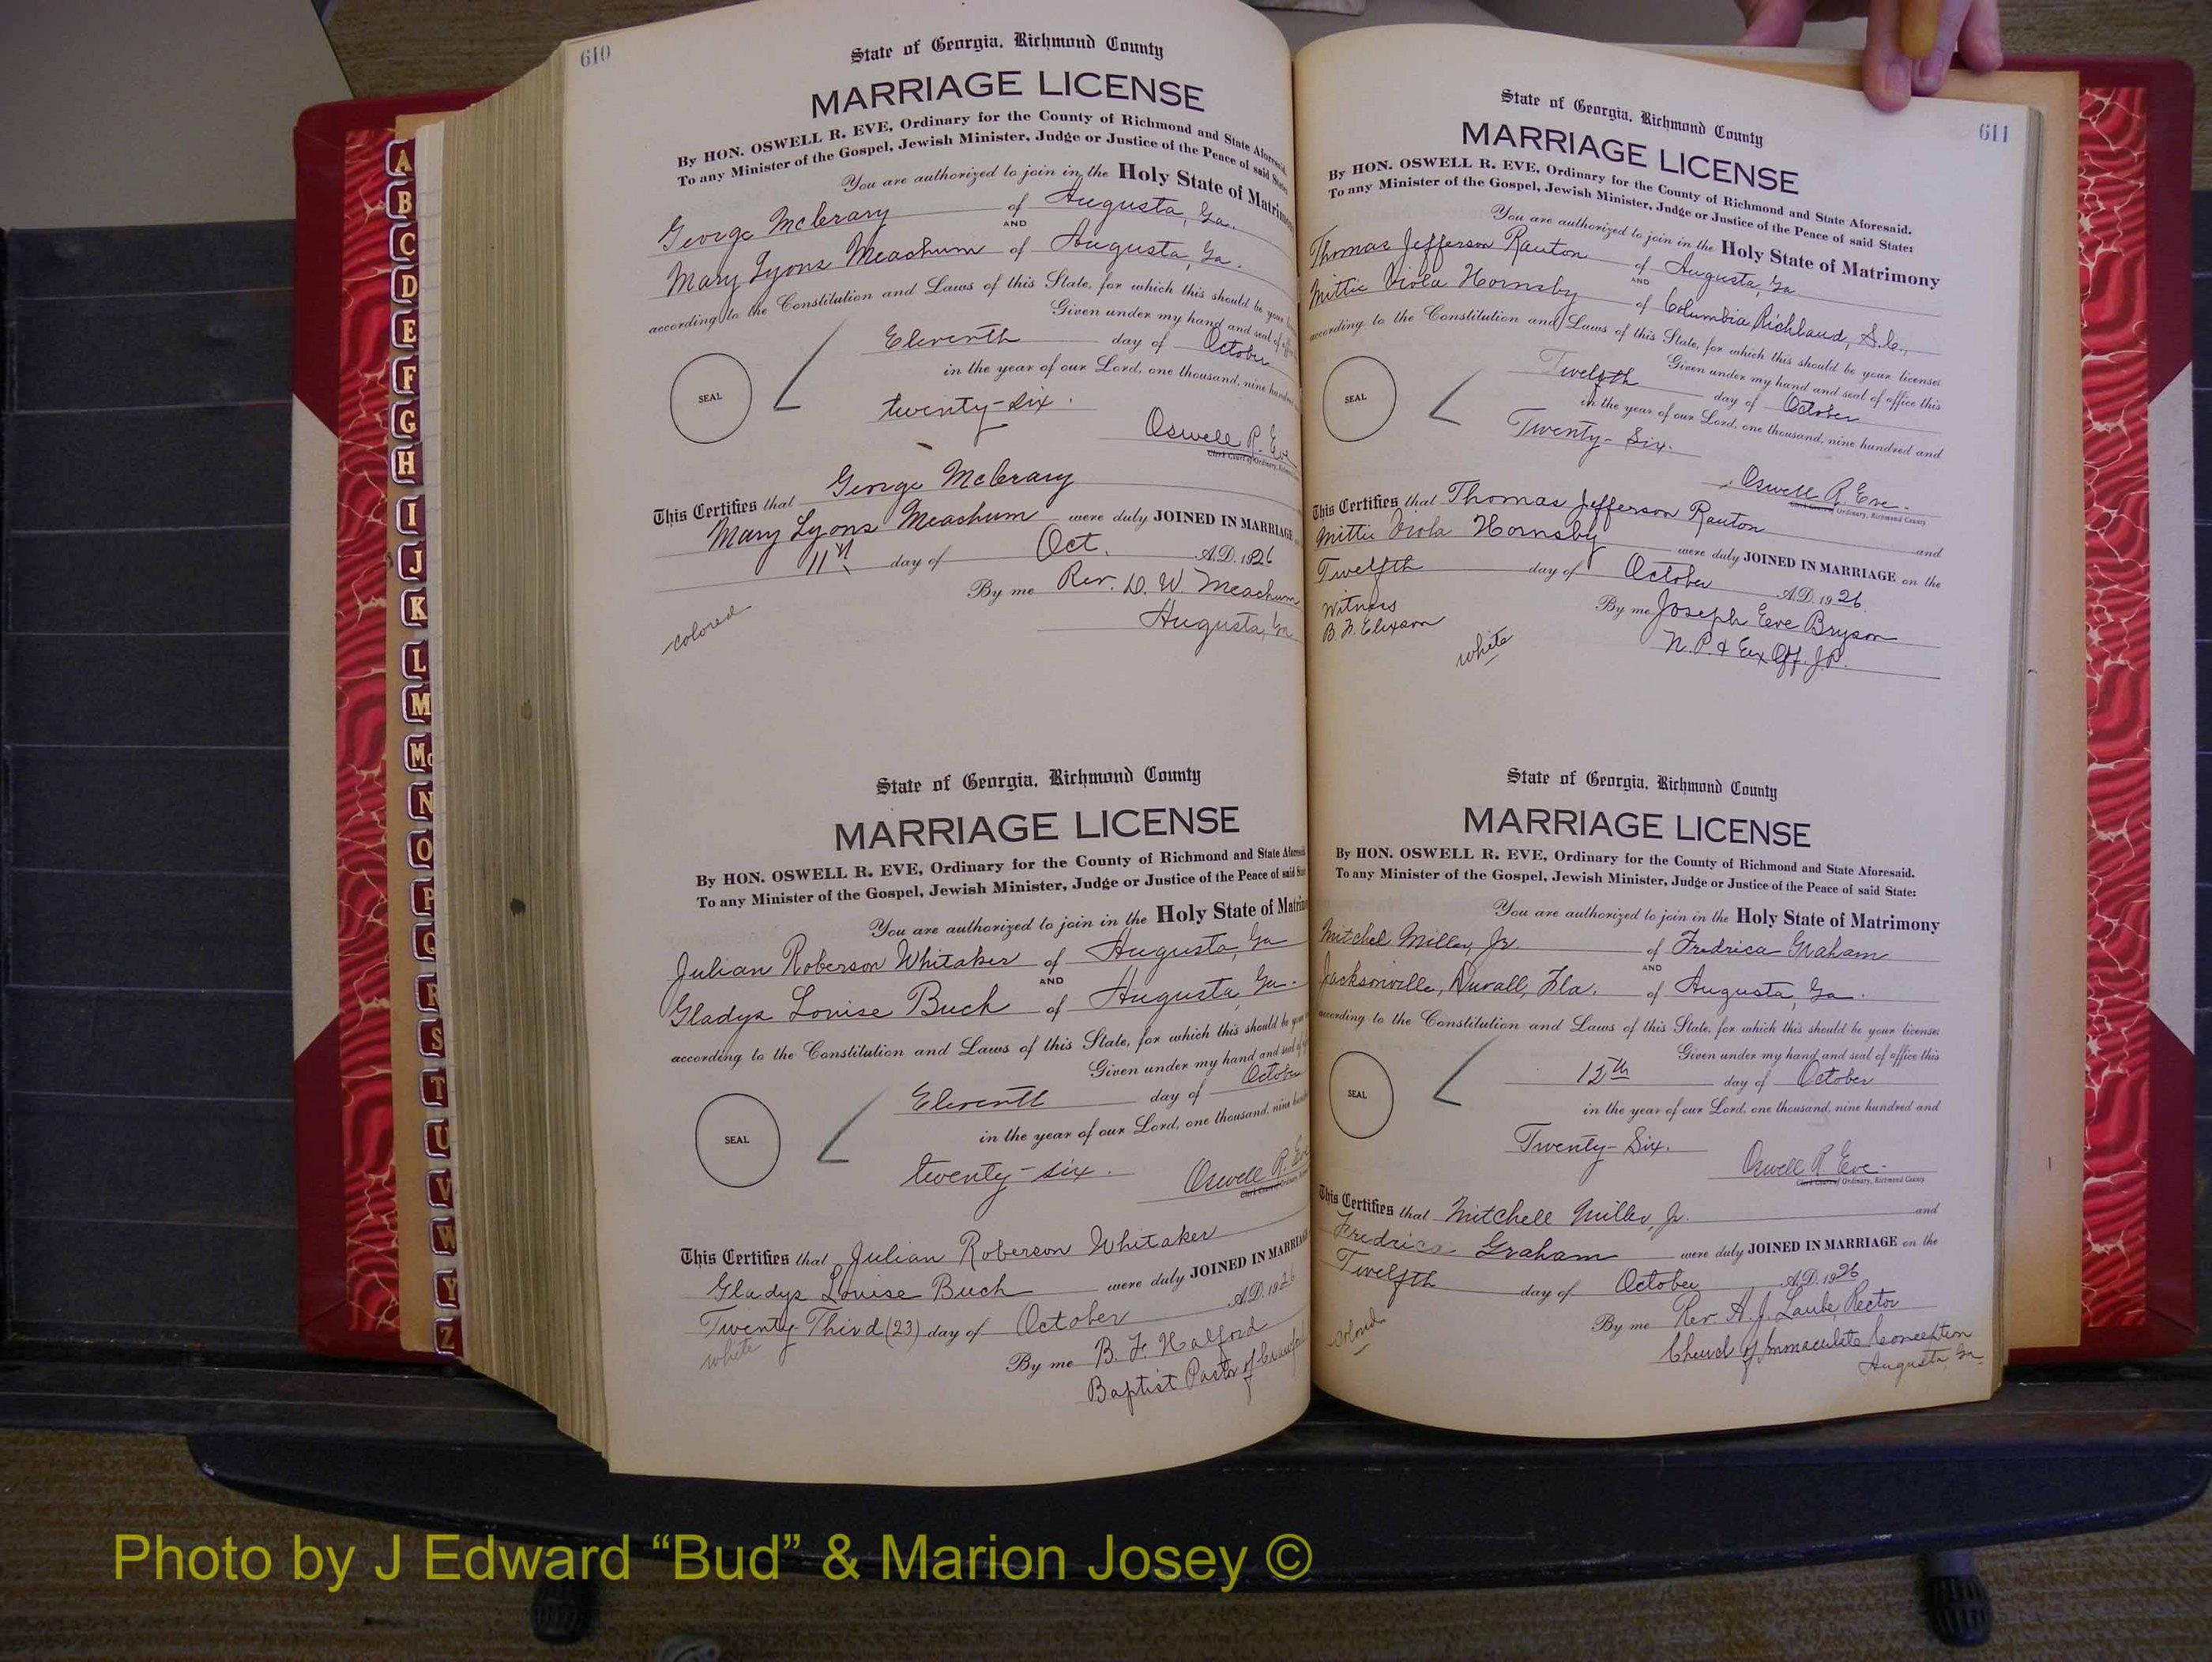 610
State of Georgia, Richmond County
MARRIAGE LICENSE
By HON. OSWELL R. EVE, Ordinary for the County of Richmond and State Aforesaid.
To any Minister of the Gospel, Jewish Minister, Judge or Justice of the Peace of said State
You are authorized to join in the Holy State of Matrimony
George McCrary of Augusta, Ga.
AND
Mary Lyons Meachum of Augusta, Ga.
according to the Constitution and Laws of this State, for which this should be your
Given under my hand and seal of
Eleventh day of October
in the year of our Lord, one thousand, nine hundred
twenty-six.
SEAL
Oswell R. Eve
Clerk Court of Ordinary,
This Certifies that George McCrary
Mary Lyons Meachum were duly JOINED IN MARRIAGE
11th day of Oct. A.D. 1926
By me Rev. D. W. Meachum
Augusta, Ga
colored
State of Georgia, Richmond County
MARRIAGE LICENSE
By HON. OSWELL R. EVE, Ordinary for the County of Richmond and State Aforesaid
To any Minister of the Gospel, Jewish Minister, Judge or Justice of the Peace of said State
You are authorized to join in the Holy State of Matrim
Julian Roberson Whitaker of Augusta, Ga
AND
Gladys Louise Buch of Augusta, Ga.
according to the Constitution and Laws of this State, for which this should be your
Given under my hand and seal of
Eleventh day of October
in the year of our Lord, one thousand, nine
twenty-six.
SEAL
Oswell R. Eve
Clerk Court of Ordinary,
This Certifies that Julian Roberson Whitaker
Gladys Louise Buch were duly JOINED IN MARRIAGE
Twenty Third (23) day of October A.D. 1926
white
By me B. F. Halford
Baptist Pastor of
611
State of Georgia, Richmond County
MARRIAGE LICENSE
By HON. OSWELL R. EVE, Ordinary for the County of Richmond and State Aforesaid.
To any Minister of the Gospel, Jewish Minister, Judge or Justice of the Peace of said State:
You are authorized to join in the Holy State of Matrimony
Thomas Jefferson Rauton of Augusta, Ga
AND
Mittie Viola Hornsby of Columbia, Richland, S.C.,
according to the Constitution and Laws of this State, for which this should be your license;
Given under my hand and seal of office this
Twelfth day of October
in the year of our Lord, one thousand, nine hundred and
Twenty-Six.
SEAL
Oswell R. Eve.
Clerk Court of Ordinary, Richmond County
This Certifies that Thomas Jefferson Rauton and
Mittie Viola Hornsby were duly JOINED IN MARRIAGE on the
Twelfth day of October A.D. 1926.
Witness
By me Joseph Eve Bryson
N.P. & Ex Off. J.P.
white
State of Georgia, Richmond County
MARRIAGE LICENSE
By HON. OSWELL R. EVE, Ordinary for the County of Richmond and State Aforesaid.
To any Minister of the Gospel, Jewish Minister, Judge or Justice of the Peace of said State:
You are authorized to join in the Holy State of Matrimony
Mitchel Miller, Jr. of Fredrica Graham
AND
Jacksonville, Duvall, Fla. of Augusta, Ga.
according to the Constitution and Laws of this State, for which this should be your license;
Given under my hand and seal of office this
12th day of October
in the year of our Lord, one thousand, nine hundred and
Twenty-Six.
SEAL
Oswell R. Eve.
Clerk Court of Ordinary, Richmond County
This Certifies that Mitchell Miller, Jr. and
Fredrica Graham were duly JOINED IN MARRIAGE on the
Twelfth day of October A.D. 1926
By me Rev. A. J. Laube, Rector
Church of Immaculate Conception
Augusta, Ga.
colored
A
B
C
D
E
F
G
H
I
J
K
L
M
Mc
N
O
P
Q
R
S
T
U
V
W
Y
Z
Photo by J Edward “Bud” & Marion Josey ©